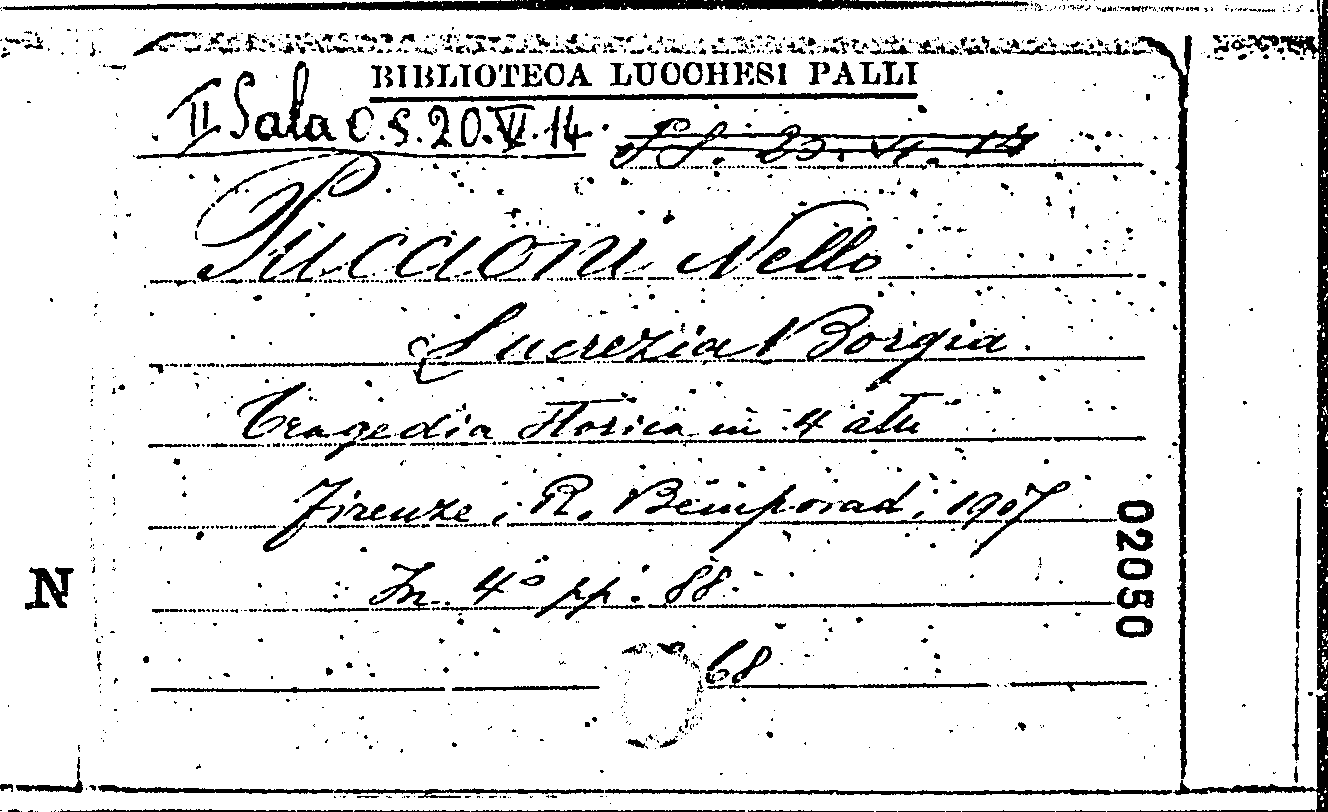 BIBLIOTECA LUCCHESI PALLI
II Sala O.S. 20. VI. 14.
Puccioni Nello
Lucrezia Borgia.
Tragedia storica in 4 atti
Firenze; R. Bemporad; 1907
In 4º pp. 88.
68
02050
N